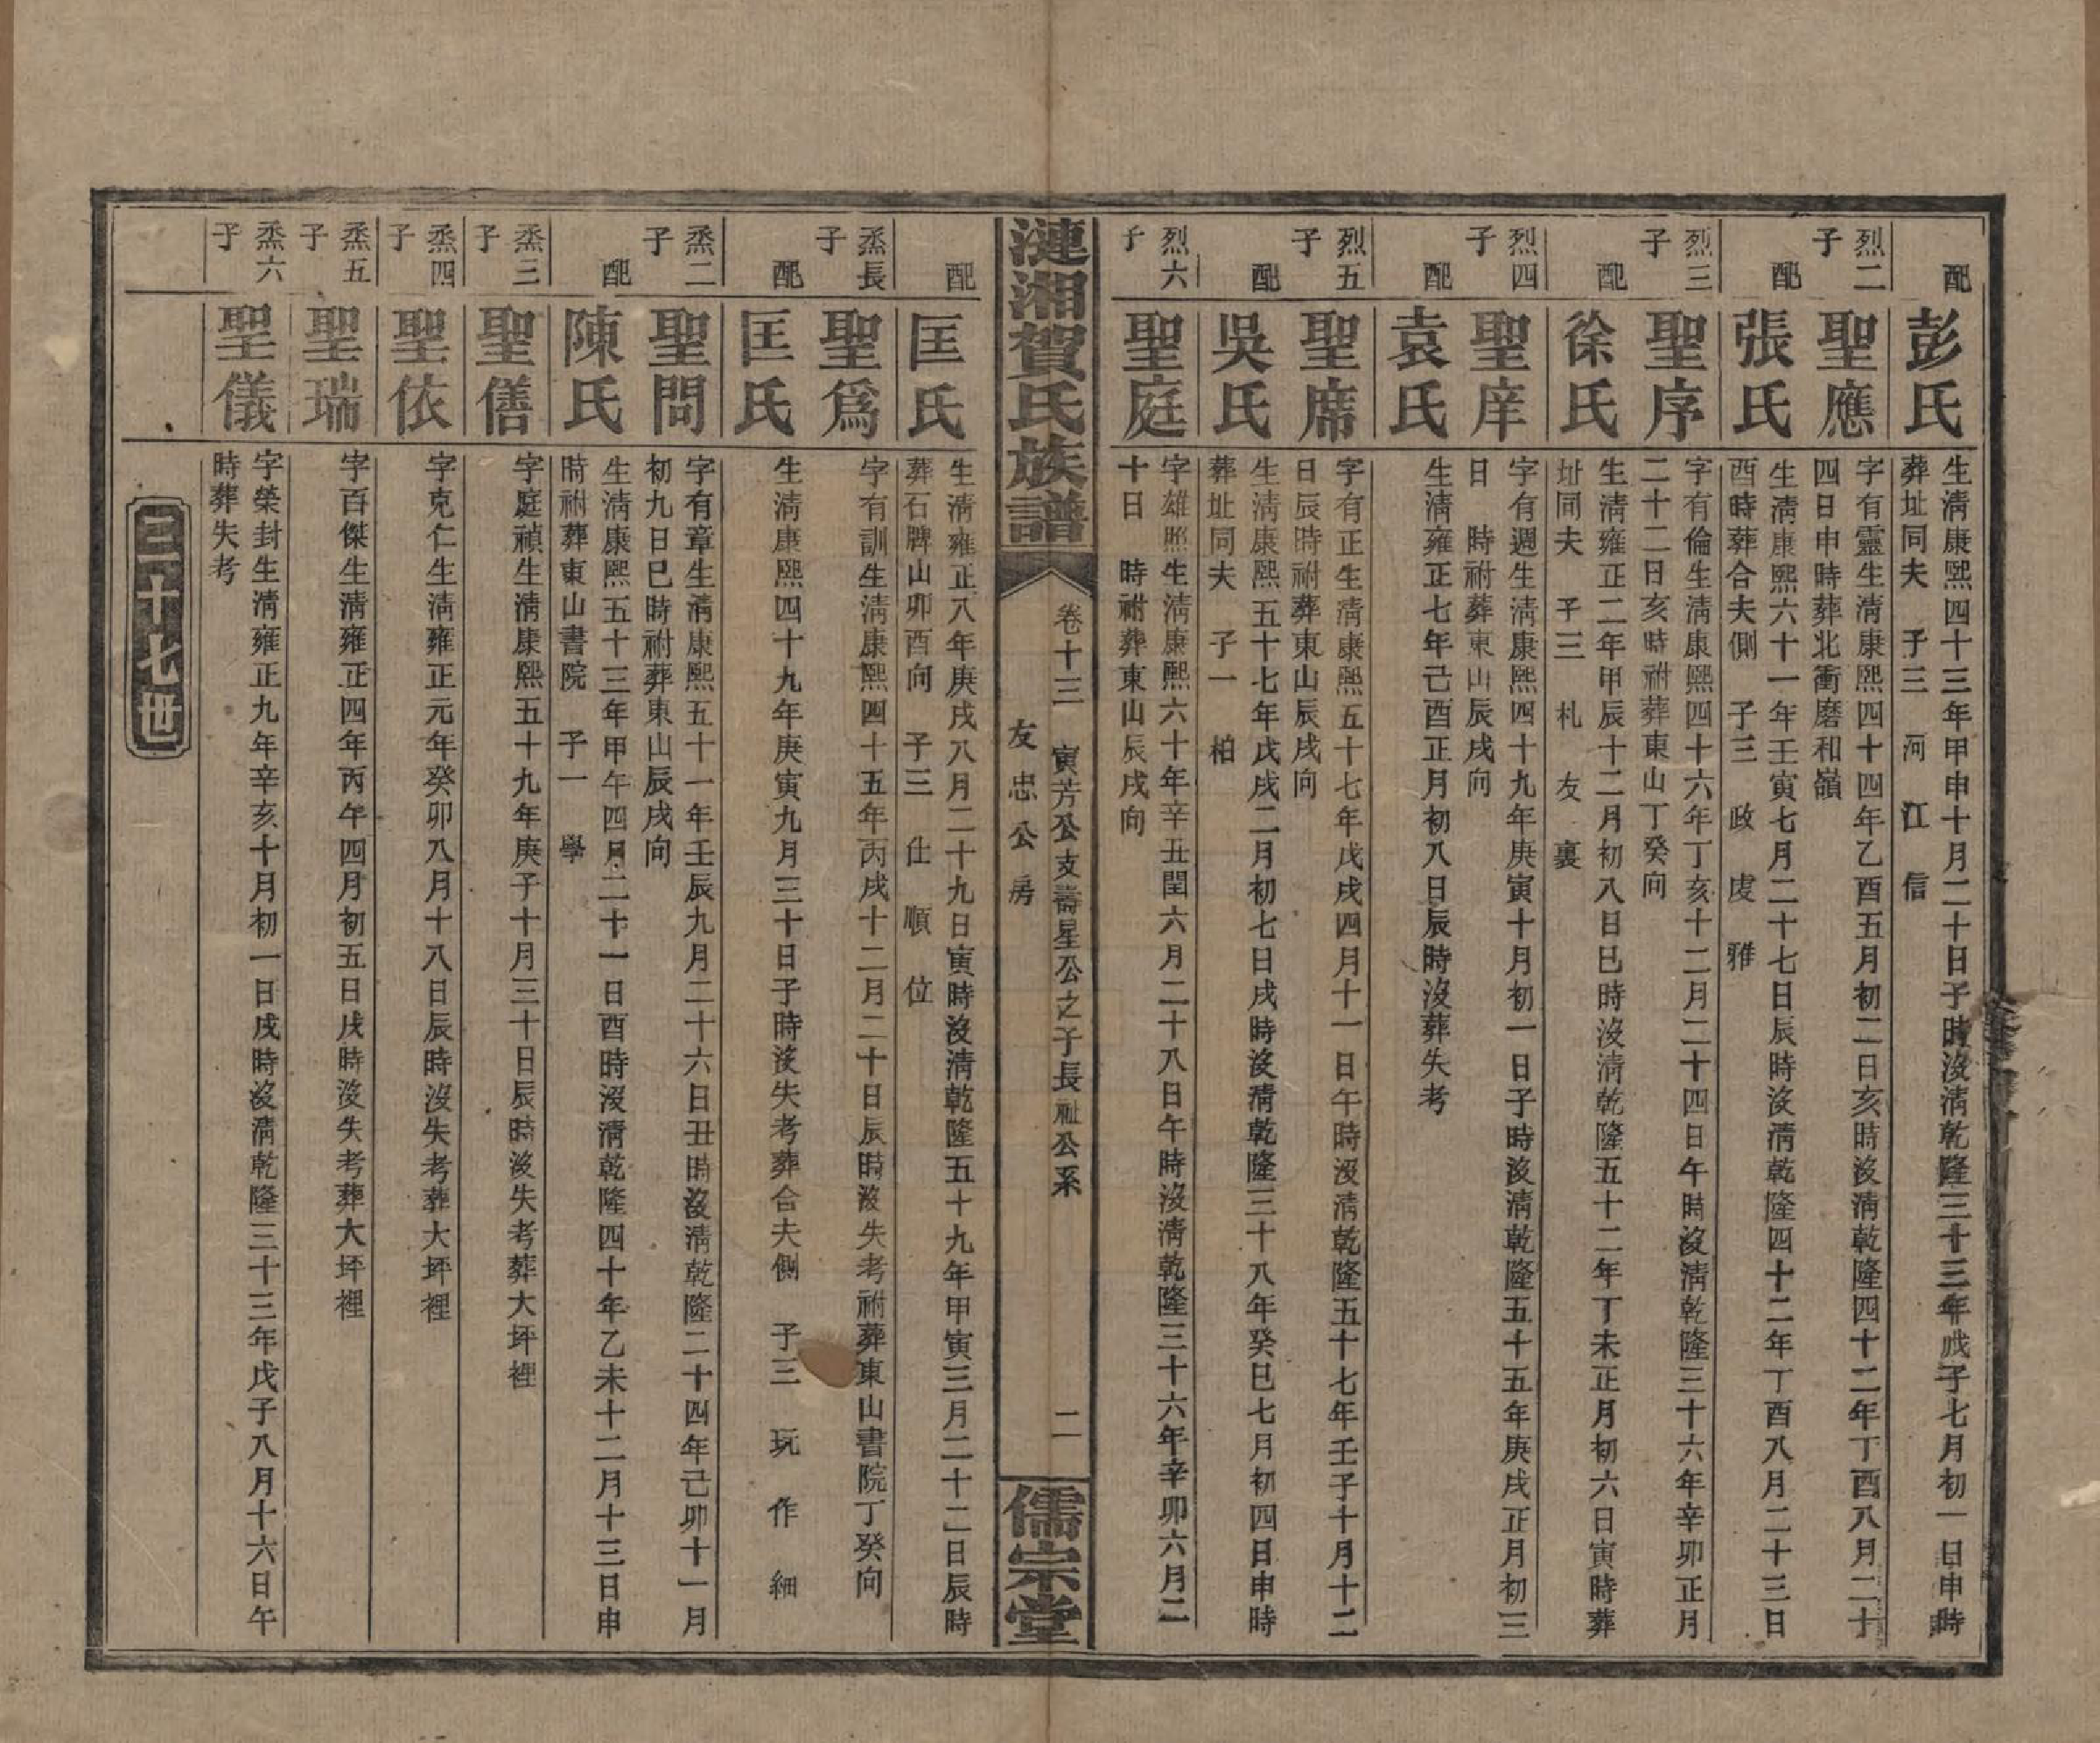 配
彭氏
生淸康熙四十三年甲申十月二十日子時沒淸乾隆三十三年戊子七月初一日申時
葬址同夫　子三　河　江　信
烈二
子
聖應
字有靈生淸康熙四十四年乙酉五月初二日亥時沒淸乾隆四十二年丁酉八月二十
四日申時葬北衝磨和嶺
配
張氏
生淸康熙六十一年壬寅七月二十七日辰時沒淸乾隆四十二年丁酉八月二十三日
酉時葬合夫側　子三　政　虔　雅
烈三
子
聖序
字有倫生淸康熙四十六年丁亥十二月二十四日午時沒淸乾隆三十六年辛卯正月
二十二日亥時祔葬東山丁癸向
配
徐氏
生淸雍正二年甲辰十二月初八日巳時沒淸乾隆五十二年丁未正月初六日寅時葬
址同夫　子三　札　友　裏
烈四
子
聖庠
字有週生淸康熙四十九年庚寅十月初一日子時沒淸乾隆五十五年庚戌正月初三
日　時祔葬東山辰戌向
配
袁氏
生淸雍正七年己酉正月初八日辰時沒葬失考
烈五
子
聖席
字有正生淸康熙五十七年戊戌四月十一日午時沒淸乾隆五十七年壬子十月十二
日辰時祔葬東山辰戌向
配
吳氏
生淸康熙五十七年戊戌二月初七日戌時沒淸乾隆三十八年癸巳七月初四日申時
葬址同夫　子一　柏
烈六
子
聖庭
字雄照生淸康熙六十年辛丑閏六月二十八日午時沒淸乾隆三十六年辛卯六月二
十日　時祔葬東山辰戌向
漣湘賀氏族譜
卷十三　寅芳公支壽星公之子長祉公系　二
友忠公房
儒宗堂
配
匡氏
生淸雍正八年庚戌八月二十九日寅時沒淸乾隆五十九年甲寅三月二十二日辰時
葬石牌山卯酉向　子三　仕　順　位
烝長
子
聖爲
字有訓生淸康熙四十五年丙戌十二月二十日辰時沒失考祔葬東山書院丁癸向
配
匡氏
生淸康熙四十九年庚寅九月三十日子時沒失考葬合夫側　子三　玩　作　細
烝二
子
聖問
字有章生淸康熙五十一年壬辰九月二十六日丑時沒淸乾隆二十四年己卯十一月
初九日巳時祔葬東山辰戌向
配
陳氏
生淸康熙五十三年甲午四月二十一日酉時沒淸乾隆四十年乙未十二月十三日申
時祔葬東山書院　子一　學
烝三
子
聖僐
字庭禎生淸康熙五十九年庚子十月三十日辰時沒失考葬大坪裡
烝四
子
聖依
字克仁生淸雍正元年癸卯八月十八日辰時沒失考葬大坪裡
烝五
子
聖瑞
字百傑生淸雍正四年丙午四月初五日戌時沒失考葬大坪裡
烝六
子
聖儀
字榮封生淸雍正九年辛亥十月初一日戌時沒淸乾隆三十三年戊子八月十六日午
時葬失考
三十七世